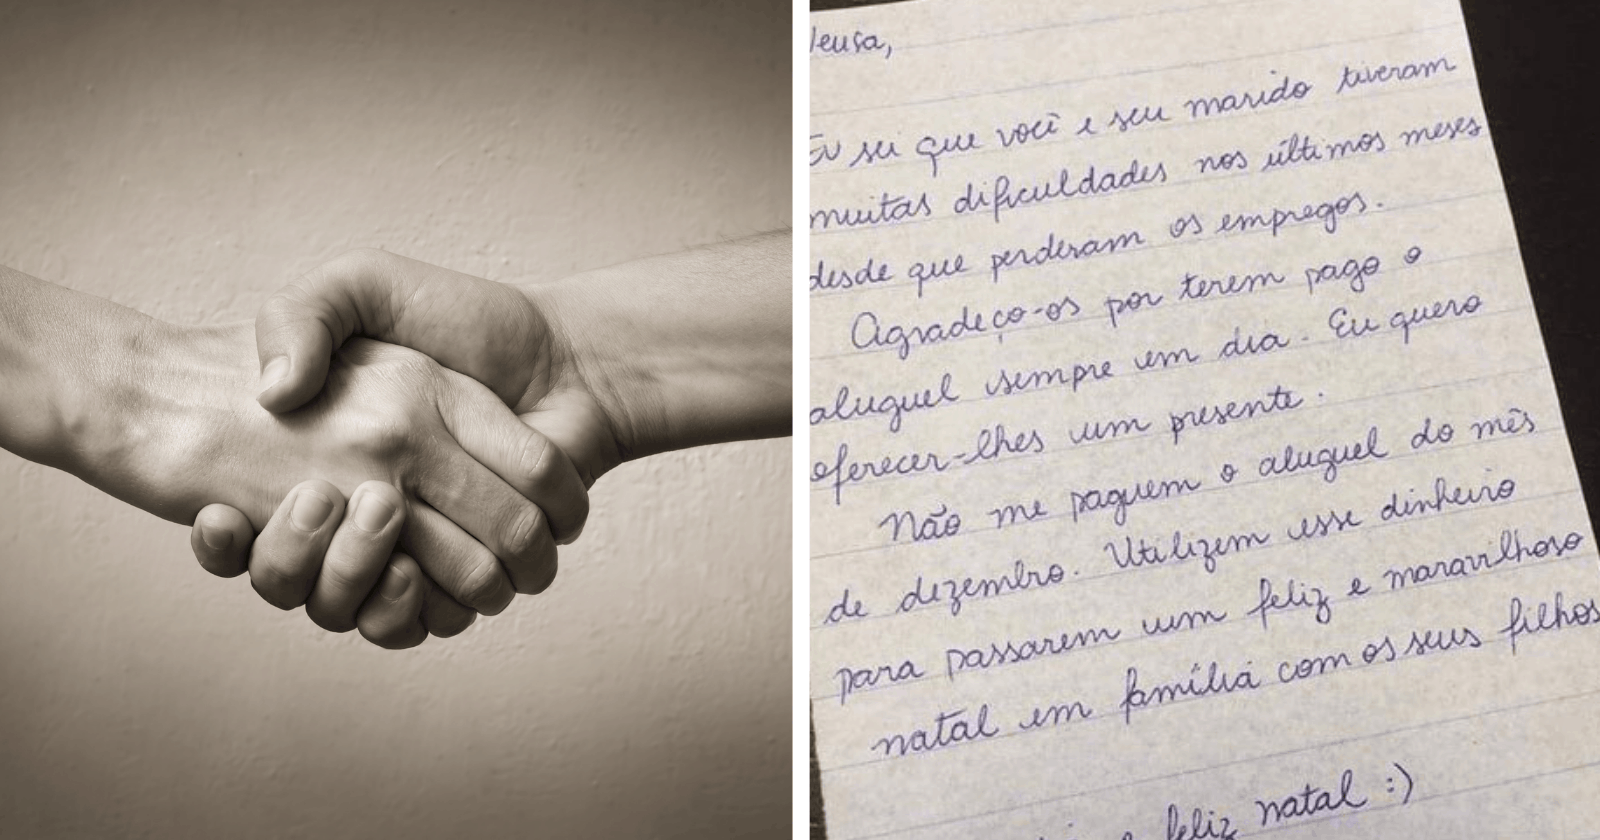 leusa,
Eu sei que você e seu marido tiveram
muitas dificuldades nos últimos meses
desde que perderam os empregos.
Agradeço-os por terem pago o
aluguel sempre em dia. Eu quero
oferecer-lhes um presente.
Não me paguem o aluguel do mês
de dezembro. Utilizem esse dinheiro
para passarem um feliz e maravilhoso
natal em família com os seus filhos
feliz natal :)